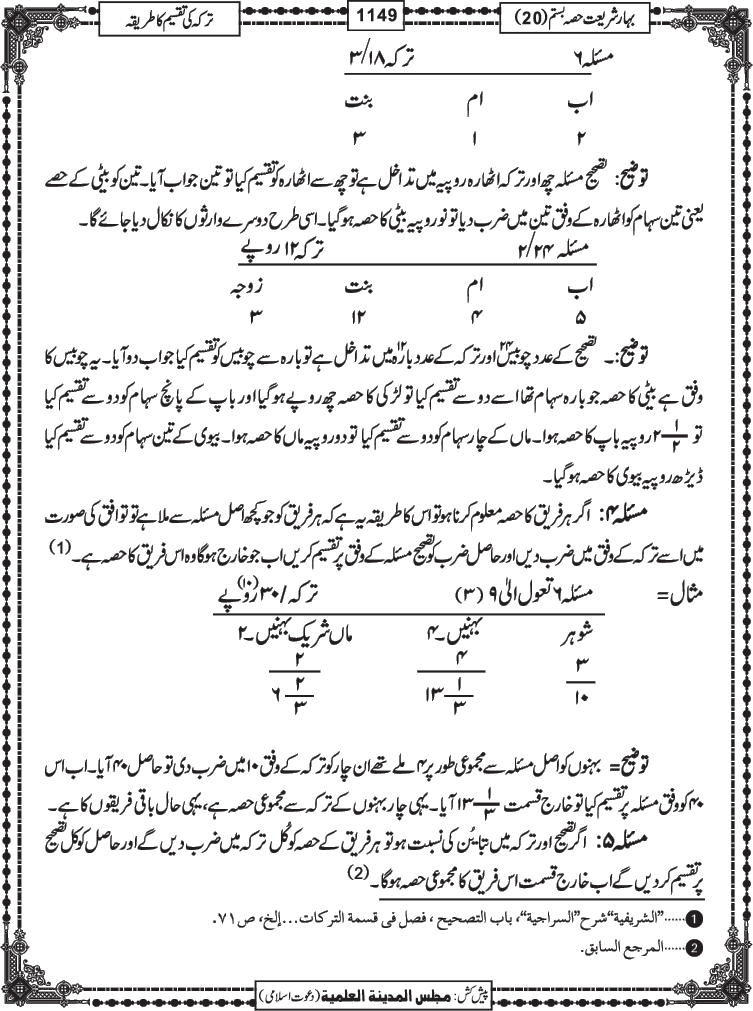 بہارِ شریعت حصہ بستم (20)
1149
ترکہ کی تقسیم کا طریقہ
مسئلہ ۶ ترکہ ۳/۱۸
اب ام بنت
۲ ۱ ۳
توضیح: تصحیح مسئلہ چھ اور ترکہ اٹھارہ روپیہ میں تداخل ہے تو چھ سے اٹھارہ کو تقسیم کیا تو تین جواب آیا۔ تین کو بیٹی کے حصے
یعنی تین سہام کو اٹھارہ کے وفق تین میں ضرب دیا تو نو روپیہ بیٹی کا حصہ ہوگیا۔ اسی طرح دوسرے وارثوں کا نکال دیا جائے گا۔
مسئلہ ۲/۲۴ ترکہ ۱۲ روپے
اب ام بنت زوجہ
۵ ۴ ۱۲ ۳
توضیح:۔ تصحیح کے عدد چوبیس۲۴ اور ترکہ کے عدد بارہ۱۲ میں تداخل ہے تو بارہ سے چوبیس کو تقسیم کیا جواب دو آیا۔ یہ چوبیس کا
وفق ہے بیٹی کا حصہ جو بارہ سہام تھا اسے دو سے تقسیم کیا تو لڑکی کا حصہ چھ روپے ہوگیا اور باپ کے پانچ سہام کو دو سے تقسیم کیا
تو ۲ ۱/۲ روپیہ باپ کا حصہ ہوا۔ ماں کے چار سہام کو دو سے تقسیم کیا تو دو روپیہ ماں کا حصہ ہوا۔ بیوی کے تین سہام کو دو سے تقسیم کیا
ڈیڑھ روپیہ بیوی کا حصہ ہوگیا۔
مسئلہ ۴: اگر ہر فریق کا حصہ معلوم کرنا ہو تو اس کا طریقہ یہ ہے کہ ہر فریق کو جو کچھ اصل مسئلہ سے ملا ہے تو توافق کی صورت
میں اسے ترکہ کے وفق میں ضرب دیں اور حاصل ضرب کو تصحیح مسئلہ کے وفق پر تقسیم کریں اب جو خارج ہوگا وہ اس فریق کا حصہ ہے۔(1)
مثال= مسئلہ ۶ تعول الیٰ ۹ (۳) ترکہ/۳۰ (۱۰) روپے
شوہر بہنیں۔۴ ماں شریک بہنیں۔۲
۳ ۴ ۲
۱۰ ۱۳ ۱/۳ ۶ ۲/۳
توضیح= بہنوں کو اصل مسئلہ سے مجموعی طور پر ۴ ملے تھے ان چار کو ترکہ کے وفق ۱۰ میں ضرب دی تو حاصل ۴۰ آیا۔ اب اس
۴۰ کو وفق مسئلہ پر تقسیم کیا تو خارج قسمت ۱۳ ۱/۳ آیا۔ یہی چار بہنوں کے ترکہ سے مجموعی حصہ ہے، یہی حال باقی فریقوں کا ہے۔
مسئلہ ۵: اگر تصحیح اور ترکہ میں تبایُن کی نسبت ہو تو ہر فریق کے حصہ کو کُل ترکہ میں ضرب دیں گے اور حاصل کو کل تصحیح
پر تقسیم کر دیں گے اب خارج قسمت اس فریق کا مجموعی حصہ ہوگا۔(2)
1 ......"الشريفية" شرح "السراجية"، باب التصحيح ، فصل فى قسمة التركات...إلخ، ص ۷۱.
2 ......المرجع السابق.
پیش کش: مجلس المدينة العلمية (دعوتِ اسلامی)